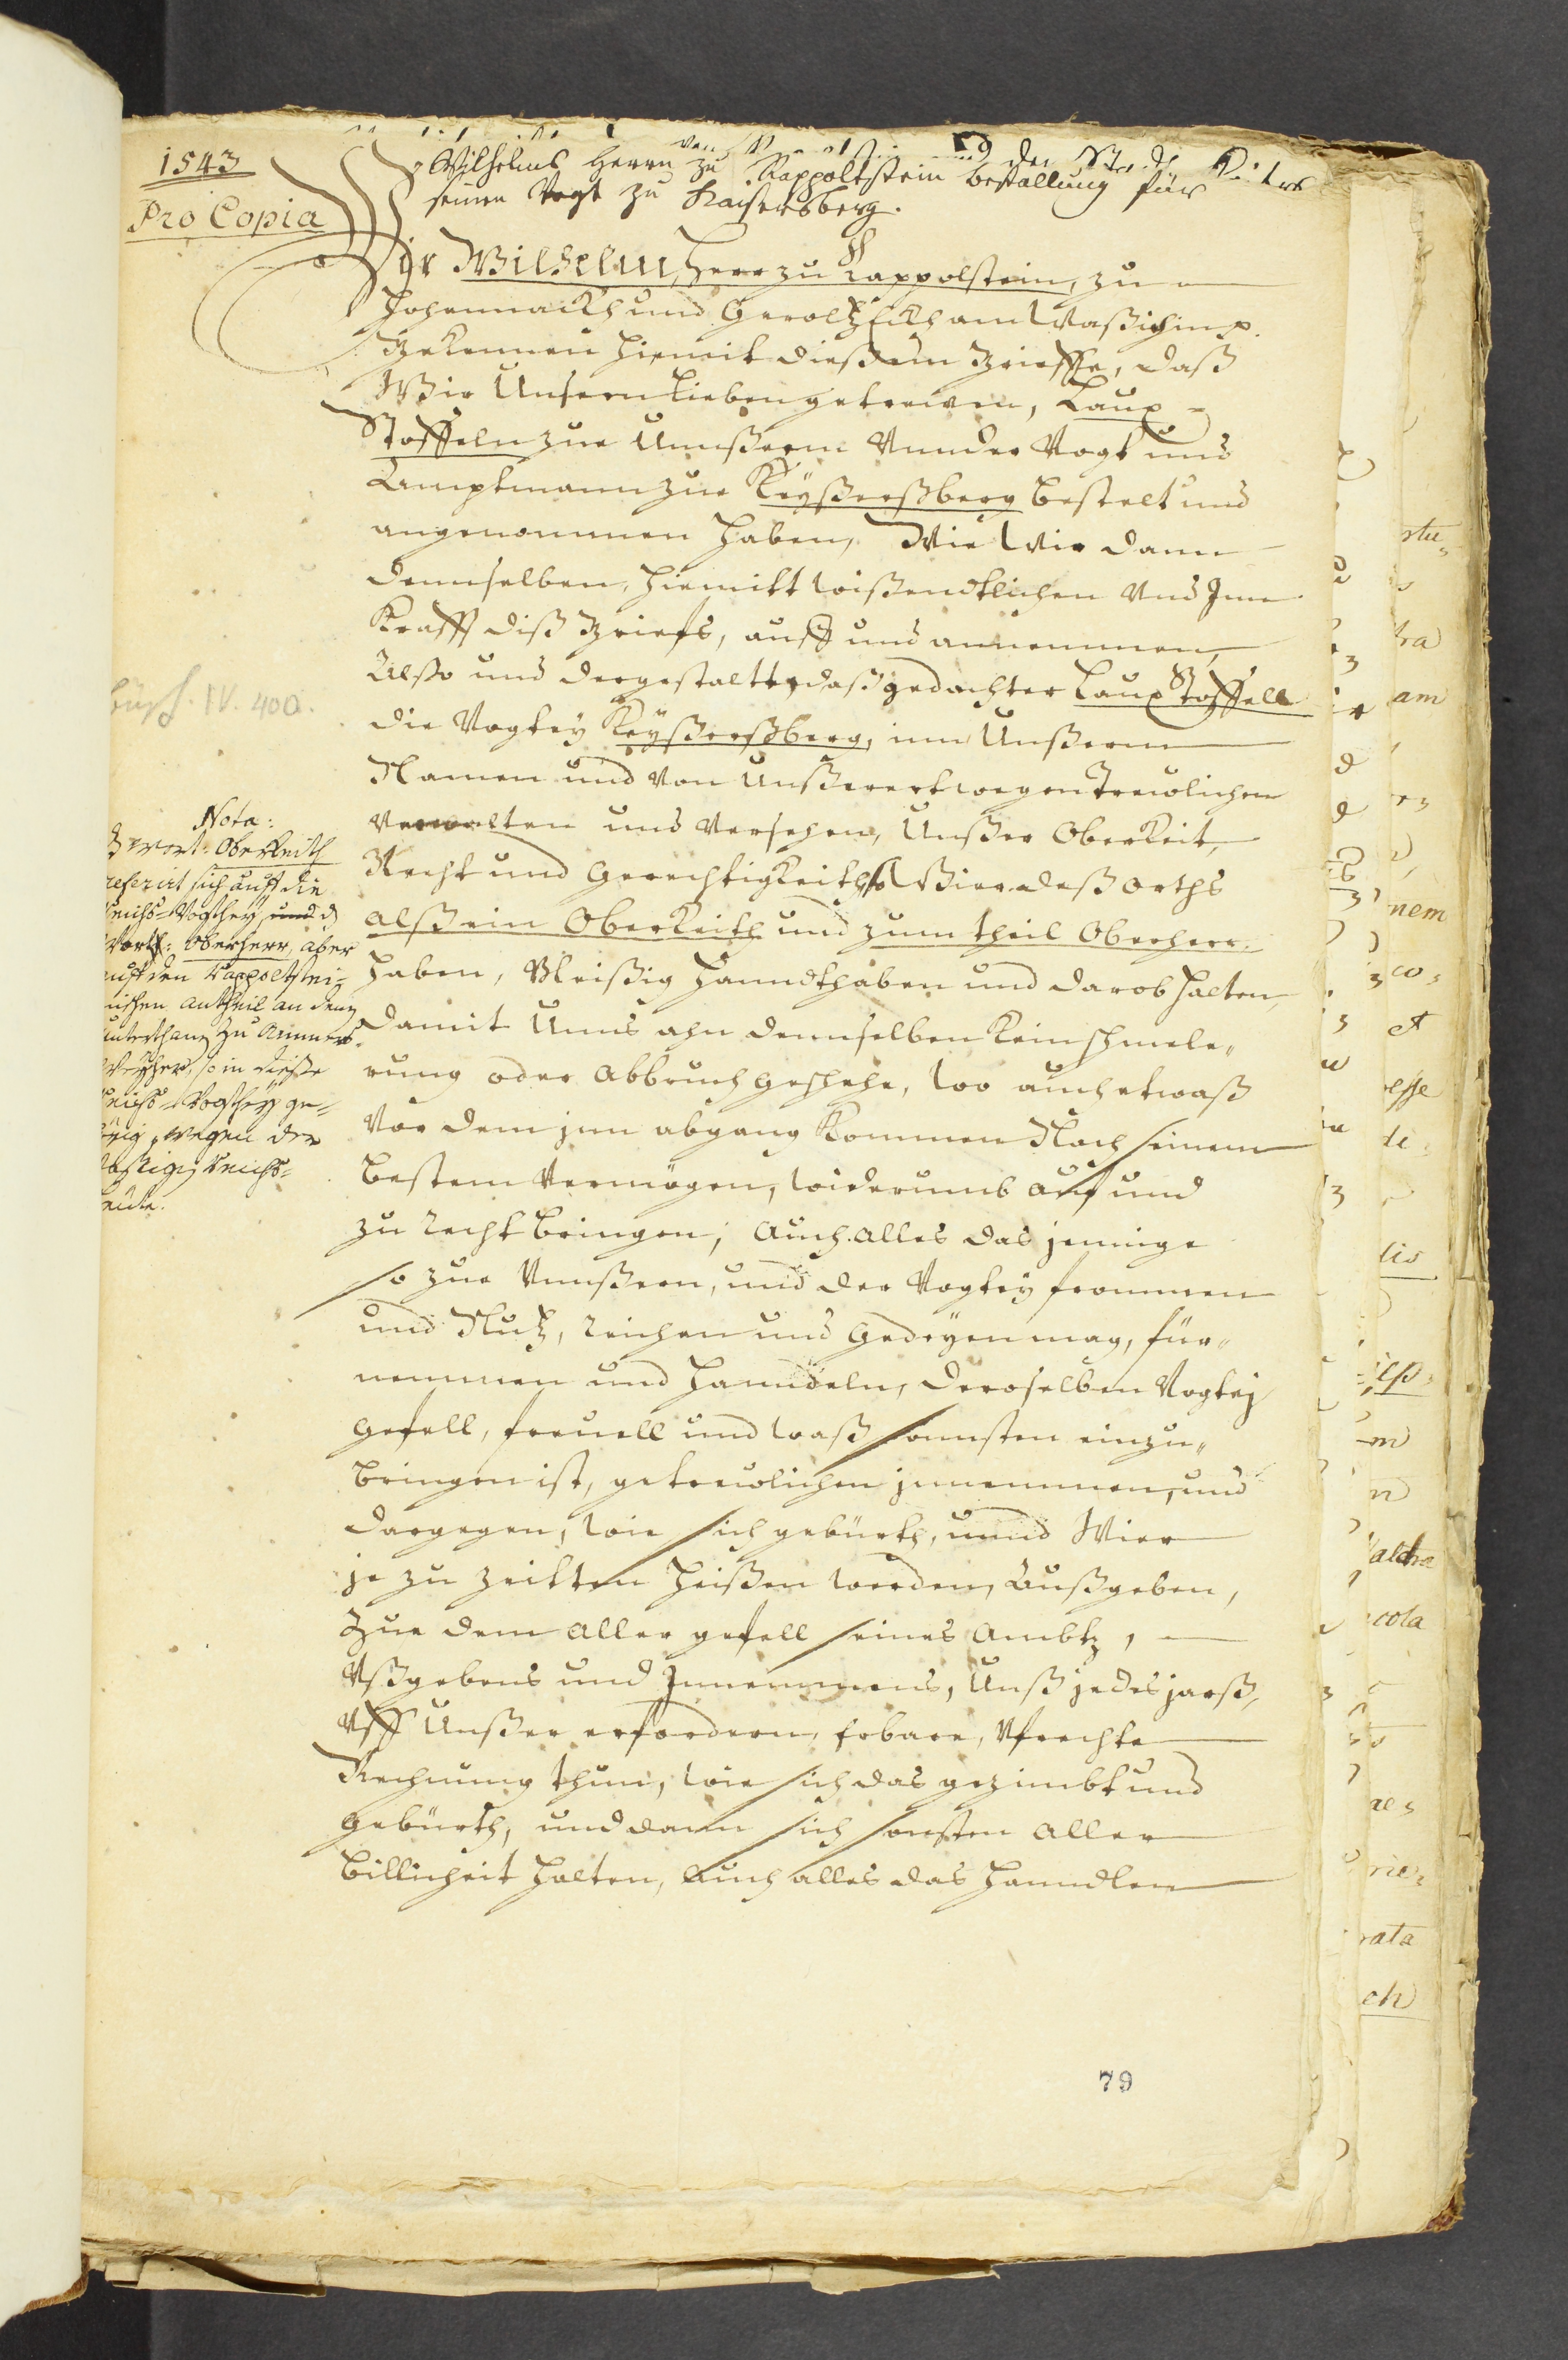 1543
Pro Copia
Wilhelms Herrn zu Rappoltstein bestallung für
seinen Vogt zu Kaisersberg.
Wir Wilhelm, Herr zu Rappolstein, zu
Hohennackh und Geroltzeckh am Waßichin p.
Bekennen hiemit dießem Brieffe, daß
Wir Unsern Lieben getrewen, Laux
Stoffeln zue Unnßerm Unnder Vogt und
Amptmann zue Keyßerßberg bestelt und
angenommen haben, Wie wir dann
demselben, hiemitt wißendtlichen Und Inn
Krafft diß Briefs, auff und annemmen,
Alßo und dergestaltt, daß gedachter Laux Stoffell
die Vogtey Keyßerßberg, inn Unßerm
Namen und von Unßerertwegen Trewlichen
Verwalten und Versehen, Unßer Oberkeit,
Recht und Gerechtigkeith, so Wier deß orths
alß ein Oberkeith und zum theil Oberherr
haben, Vleißig hanndthaben und darob halten,
damit Unns ahn demselben kein schmele„
rung oder Abbruch geschehe, wo auch etwaß
Vor dem jnn abgang kommen Nach seinem
bestem Vermögen, widerumb auf und
zu recht bringen, auch alles das jeninge
so zue Unnßern, und der Vogtey frommen
und Nutz, reichen und gedeyen mag, für„
nemmen und hanndeln, deroselben Vogtej
gefell, frevell und waß sonnsten einzu„
bringen ist, getrewlichen jnnemmen, und
dargegen, wie sich gebürth, unnd Wier
je zu zeitten heißen werden, Außgeben,
Zue dem aller gefell seines Ambtz,
Ußgebens und Innemmens, Unß jedes jarß,
Uff Unßer erfordern, erbare, Ufrechte
Rechnung thun, wie sich das gezimbt und
gebürth, und dann sich sonsten aller
billicheit halten, auch alles das hanndlen
IV. 400.
Nota:
wort: Oberkeith
referirt sich auff die
Reichs-Vogthey, und d
Wort: Oberherr, aber
auff den Rappoltstei-
nischen antheil an denen
unterthanen zu Ammers-
weyher, so in dieße
Reichs-Vogthey ge-
hörig, wegen der
Reichs-
leute.
79